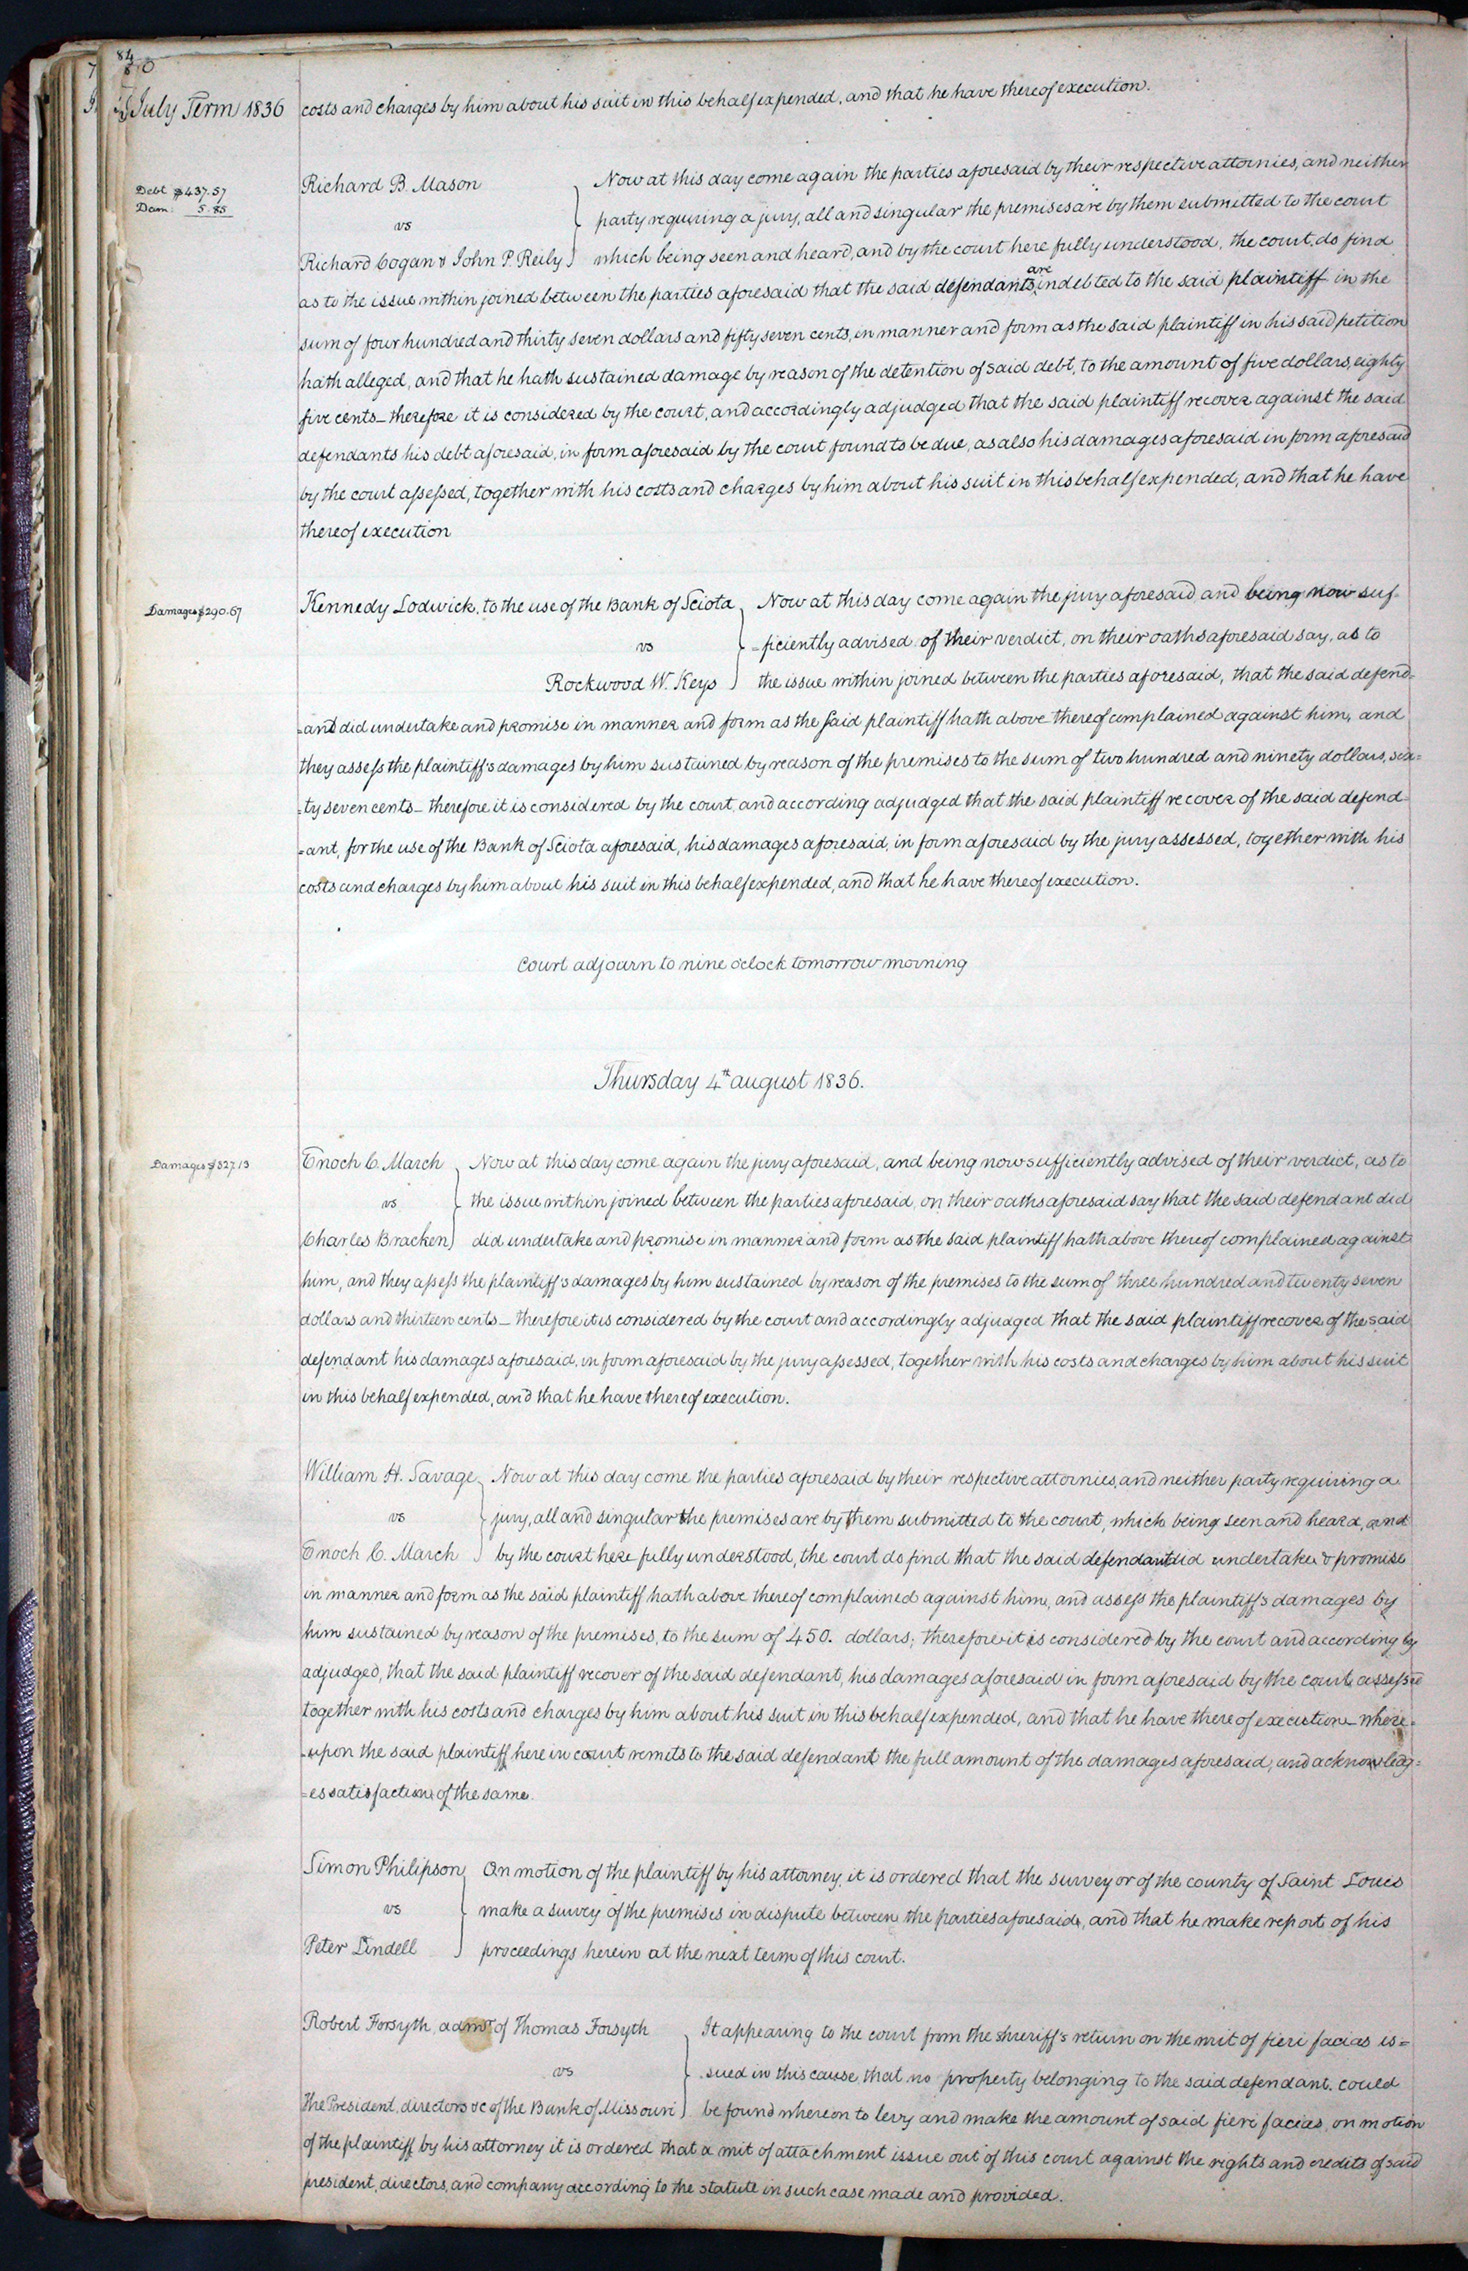 84
80
July Term 1836
costs and charges by him about his suit in this behalf expended, and that he have thereof execution.
Debt $437.57
Dam: 5.85
Richard B. Mason
vs
Richard Cogan & John P. Reily
Now at this day come again the parties aforesaid by their respective attornies, and neither
party requiring a jury, all and singular the premises are by them submitted to the court
which being seen and heard, and by the court here fully understood, the court do find
as to the issue within joined between the parties aforesaid that the said defendants are indebted to the said plaintiff in the
sum of four hundred and thirty seven dollars and fifty seven cents, in manner and form as the said plaintiff in his said petition
hath alleged, and that he hath sustained damage by reason of the detention of said debt, to the amount of five dollars, eighty
five cents_ therefore it is considered by the court, and accordingly adjudged that the said plaintiff recover against the said
defendants his debt aforesaid, in form aforesaid by the court found to be due, as also his damages aforesaid in form aforesaid
by the court assessed, together with his costs and charges by him about his suit in this behalf expended, and that he have
thereof execution
Damages $290.67
Kennedy Lodwick, to the use of the Bank of Sciota
vs
Rockwood W. Keys
Now at this day come again the jury aforesaid, and being now suf-
=ficiently advised of their verdict, on their oaths aforesaid say, as to
the issue within joined between the parties aforesaid, that the said defend=
=and did undertake and promise in manner and form as the said plaintiff hath above thereof complained against him, and
they assess the plaintiff's damages by him sustained by reason of the premises to the sum of two hundred and ninety dollars, six=
=ty seven cents_ therefore it is considered by the court, and according adjudged that the said plaintiff recover of the said defend=
=ant, for the use of the Bank of Sciota aforesaid, his damages aforesaid, in form aforesaid by the jury assessed, together with his
costs and charges by him about his suit in this behalf expended, and that he have thereof execution.
Court adjourn to nine o'clock tomorrow morning
Thursday 4th august 1836.
Damages $327.13
Enoch C. March
vs
Charles Bracken
Now at this day come again the jury aforesaid, and being now sufficiently advised of their verdict, as to
the issue within joined between the parties aforesaid, on their oaths aforesaid say that the said defendant did
did undertake and promise in manner and form as the said plaintiff hath above thereof complained against
him, and they assess the plaintiff's damages by him sustained by reason of the premises to the sum of three hundred and twenty seven
dollars and thirteen cents_ therefore it is considered by the court and accordingly adjudged that the said plaintiff recover of the said
defendant his damages aforesaid, in form aforesaid by the jury assessed, together with his costs and charges by him about his suit
in this behalf expended, and that he have thereof execution.
William H. Savage
vs
Enoch C. March
Now at this day come the parties aforesaid by their respective attornies, and neither party requiring a
jury, all and singular the premises are by them submitted to the court, which being seen and heard, and
by the court here fully understood, the court do find that the said defendant did undertake & promise
in manner and form as the said plaintiff hath above thereof complained against him, and assess the plaintiff's damages by
him sustained by reason of the premises, to the sum of 450. dollars; therefore it is considered by the court and accordingly
adjudged, that the said plaintiff recover of the said defendant, his damages aforesaid in form aforesaid by the court assessed
together with his costs and charges by him about his suit in this behalf expended, and that he have thereof execution_ where=
=upon the said plaintiff here in court remits to the said defendant the full amount of the damages aforesaid, and acknowledg=
=es satisfaction of the same.
Simon Philipson
vs
Peter Lindell
On motion of the plaintiff by his attorney, it is ordered that the surveyor of the county of Saint Louis
make a survey of the premises in dispute between the parties aforesaid, and that he make report of his
proceedings herein at the next term of this court.
Robert Forsyth, admr of Thomas Forsyth
vs
The President, directors &c of the Bank of Missouri
It appearing to the court from the sheriff's return on the writ of fieri facias is=
sued in this cause, that no property belonging to the said defendant could
be found whereon to levy and make the amount of said fieri facias, on motion
of the plaintiff by his attorney it is ordered that a writ of attachment issue out of this court against the rights and credits of said
president, directors, and company according to the statute in such case made and provided.